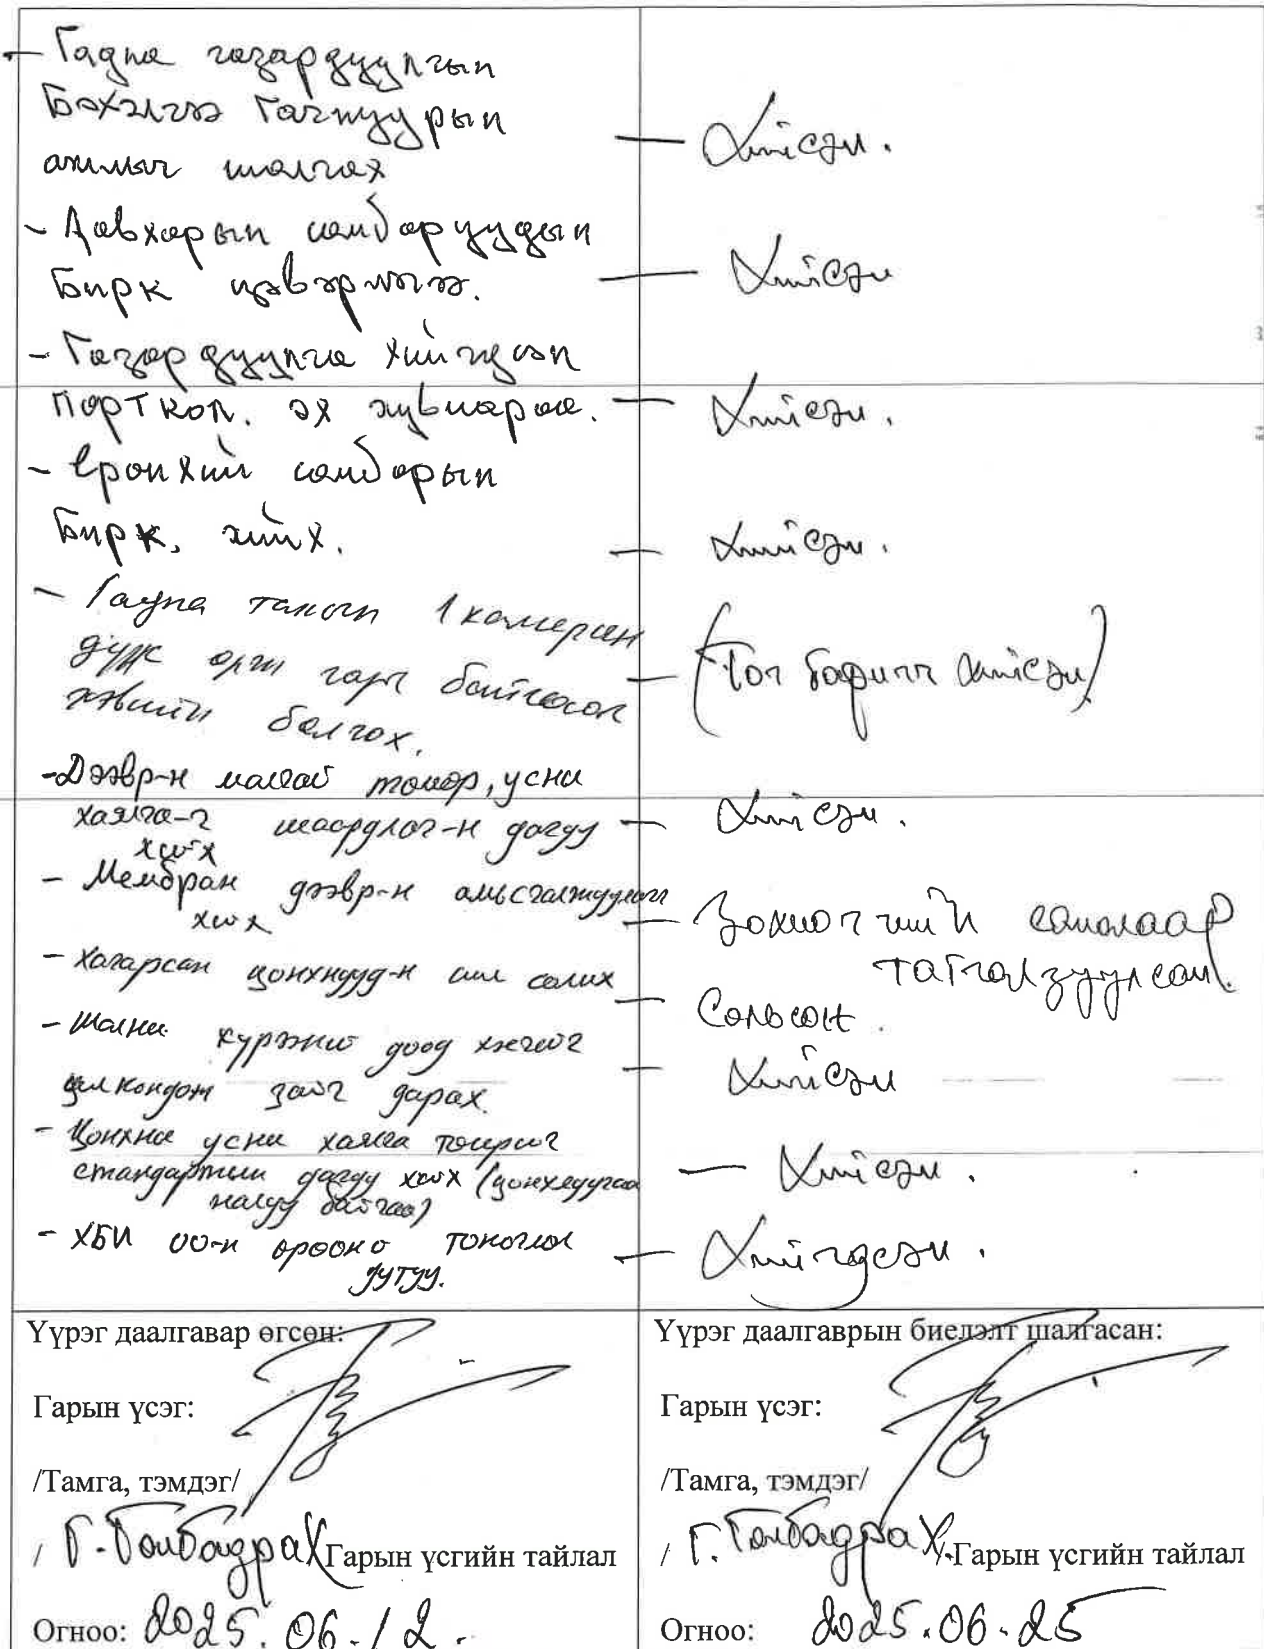 - Гадна газардуулгын
Бэхэлгээ Гагнуурын
ажлыг шалгах
— Хийсэн.
- Давхарын самбаруудын
Бирк цэвэрлэгээ.
— Хийсэн
- Газардуулга хийгдсэн
порткол. эх хувиараа.
— Хийсэн.
- Ерөнхий самбарын
Бирк, хийх.
— Хийсэн.
- Гадна талын 1 камерын
дүрс орж гарч байгааг
хэвийн болгох.
— (Тог баригч хийсэн)
- Дээвр-н малгай төмөр, усны
хаялга-г шаардлаг-н дагуу
хийх
— Хийсэн.
- Мембран дээвр-н амьсгалжуулагч
хийх
— Зохиогчийн саналаар
татгалзуулсан.
- Хагарсан цонхнууд-н шил солих
— Сольсон.
- Шалны хүрээний доод хэсгийг
зайг дарах.
— Хийсэн
- Цонхны усны хаялга төмрийг
стандартын дагуу хийх (цонхнуудаа
налуу байгаа)
— Хийсэн.
- ХБИ 00-н өрөөний тоноглол
дутуу.
— Хийгдсэн.
Үүрэг даалгавар өгсөн:
Гарын үсэг:
/Тамга, тэмдэг/
/ Г. Ганбадрах Гарын үсгийн тайлал
Огноо: 2025.06.12.
Үүрэг даалгаврын биелэлт шалгасан:
Гарын үсэг:
/Тамга, тэмдэг/
/ Г. Ганбадрах. Гарын үсгийн тайлал
Огноо: 2025.06.25